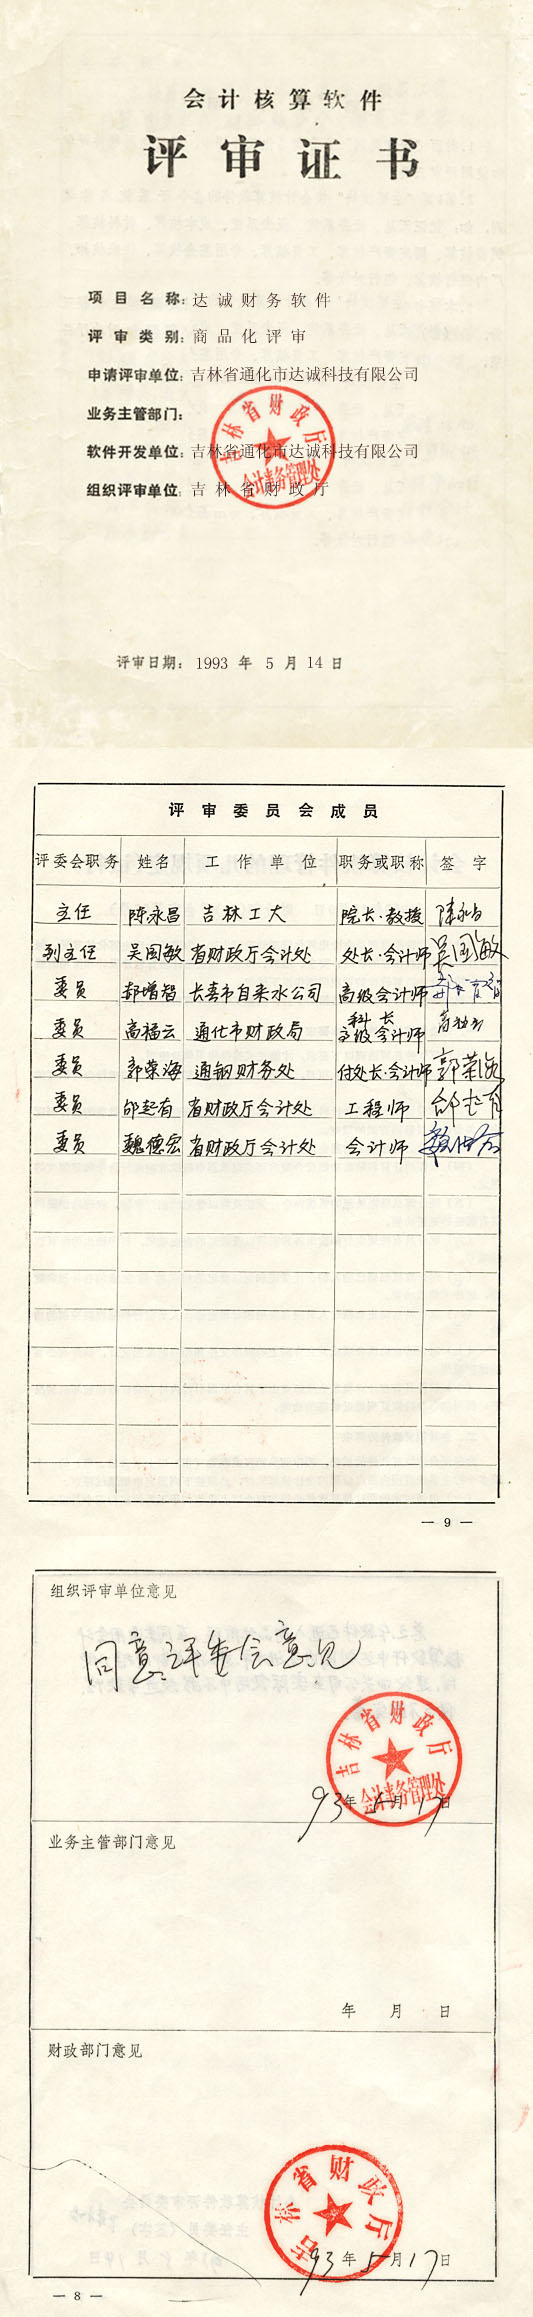 会计核算软件
评审证书
项目名称：达诚财务软件
评审类别：商品化评审
申请评审单位：吉林省通化市达诚科技有限公司
业务主管部门：
软件开发单位：吉林省通化市达诚科技有限公司
组织评审单位：吉林省财政厅
吉林省财政厅
会计事务管理处
评审日期：1993年5月14日
评审委员会成员
评委会职务 姓名 工作单位 职务或职称 签字
主任 陈永昌 吉林工大 院长·教授 陈永昌
副主任 吴国敏 省财政厅会计处 处长·会计师 吴国敏
委员 郝增智 长春市自来水公司 高级会计师
委员 高福云 通化市财政局 科长 高级会计师
委员 郭荣海 通钢财务处 付处长·会计师 郭荣海
委员 邰起有 省财政厅会计处 工程师
委员 魏德宏 省财政厅会计处 会计师
— 9 —
组织评审单位意见
同意评委会意见
吉林省财政厅
会计事务管理处
93年5月17日
业务主管部门意见
年 月 日
财政部门意见
吉林省财政厅
93年5月17日
— 8 —